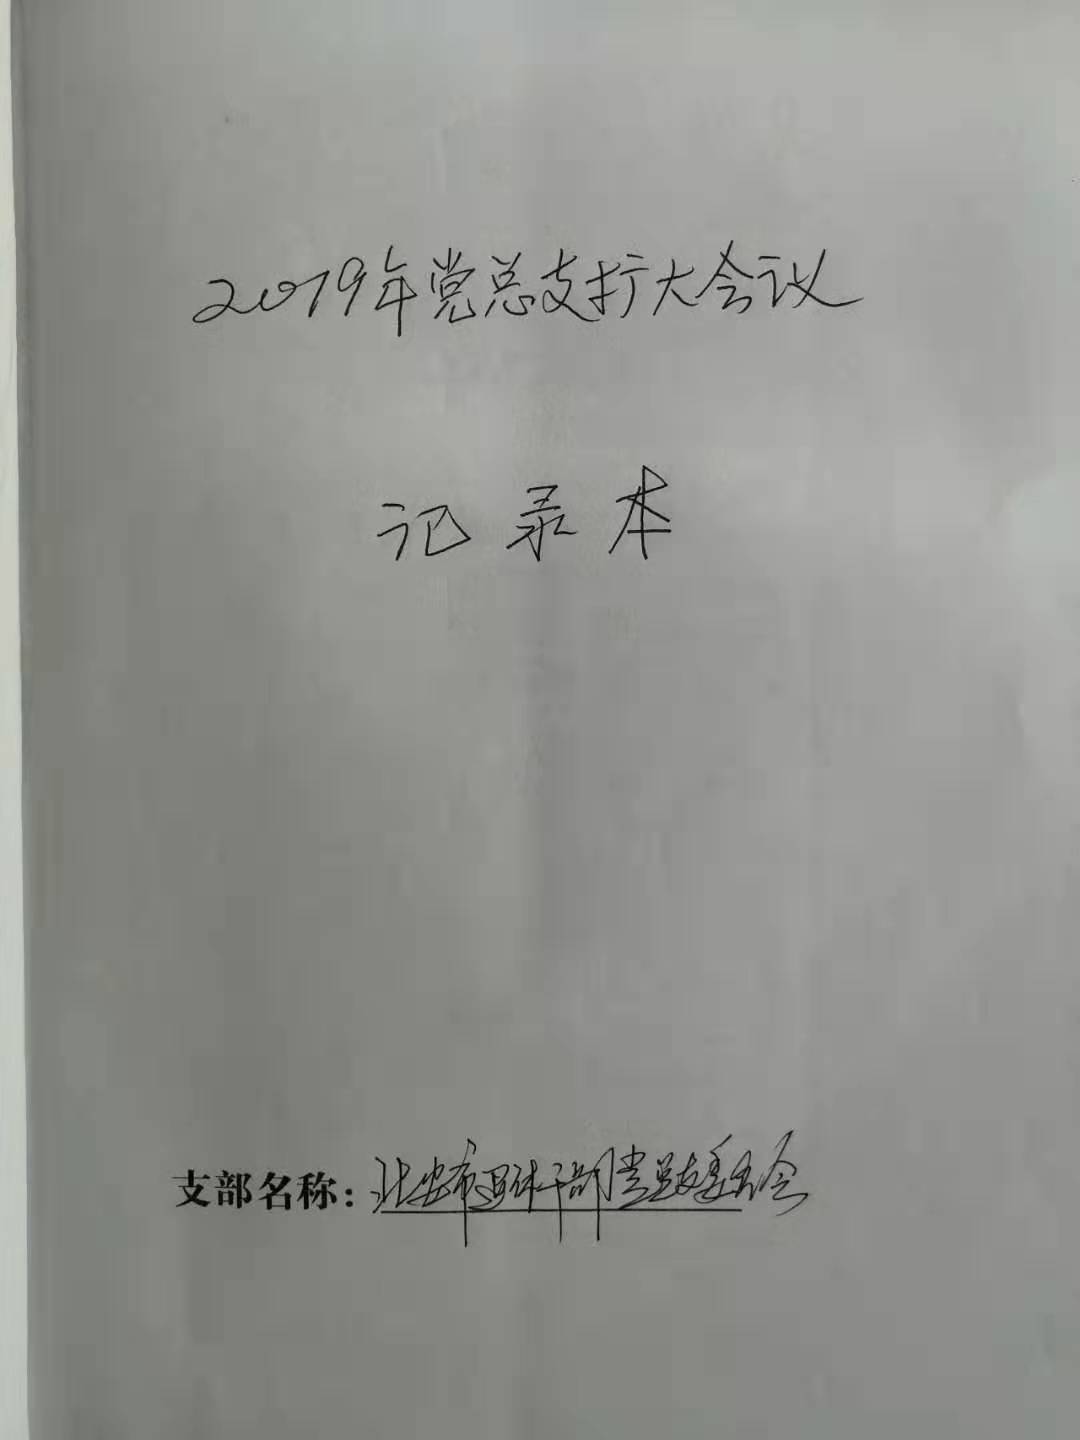 2019年党总支扩大会议
记录本
支部名称：北安市退休干部党总支委员会